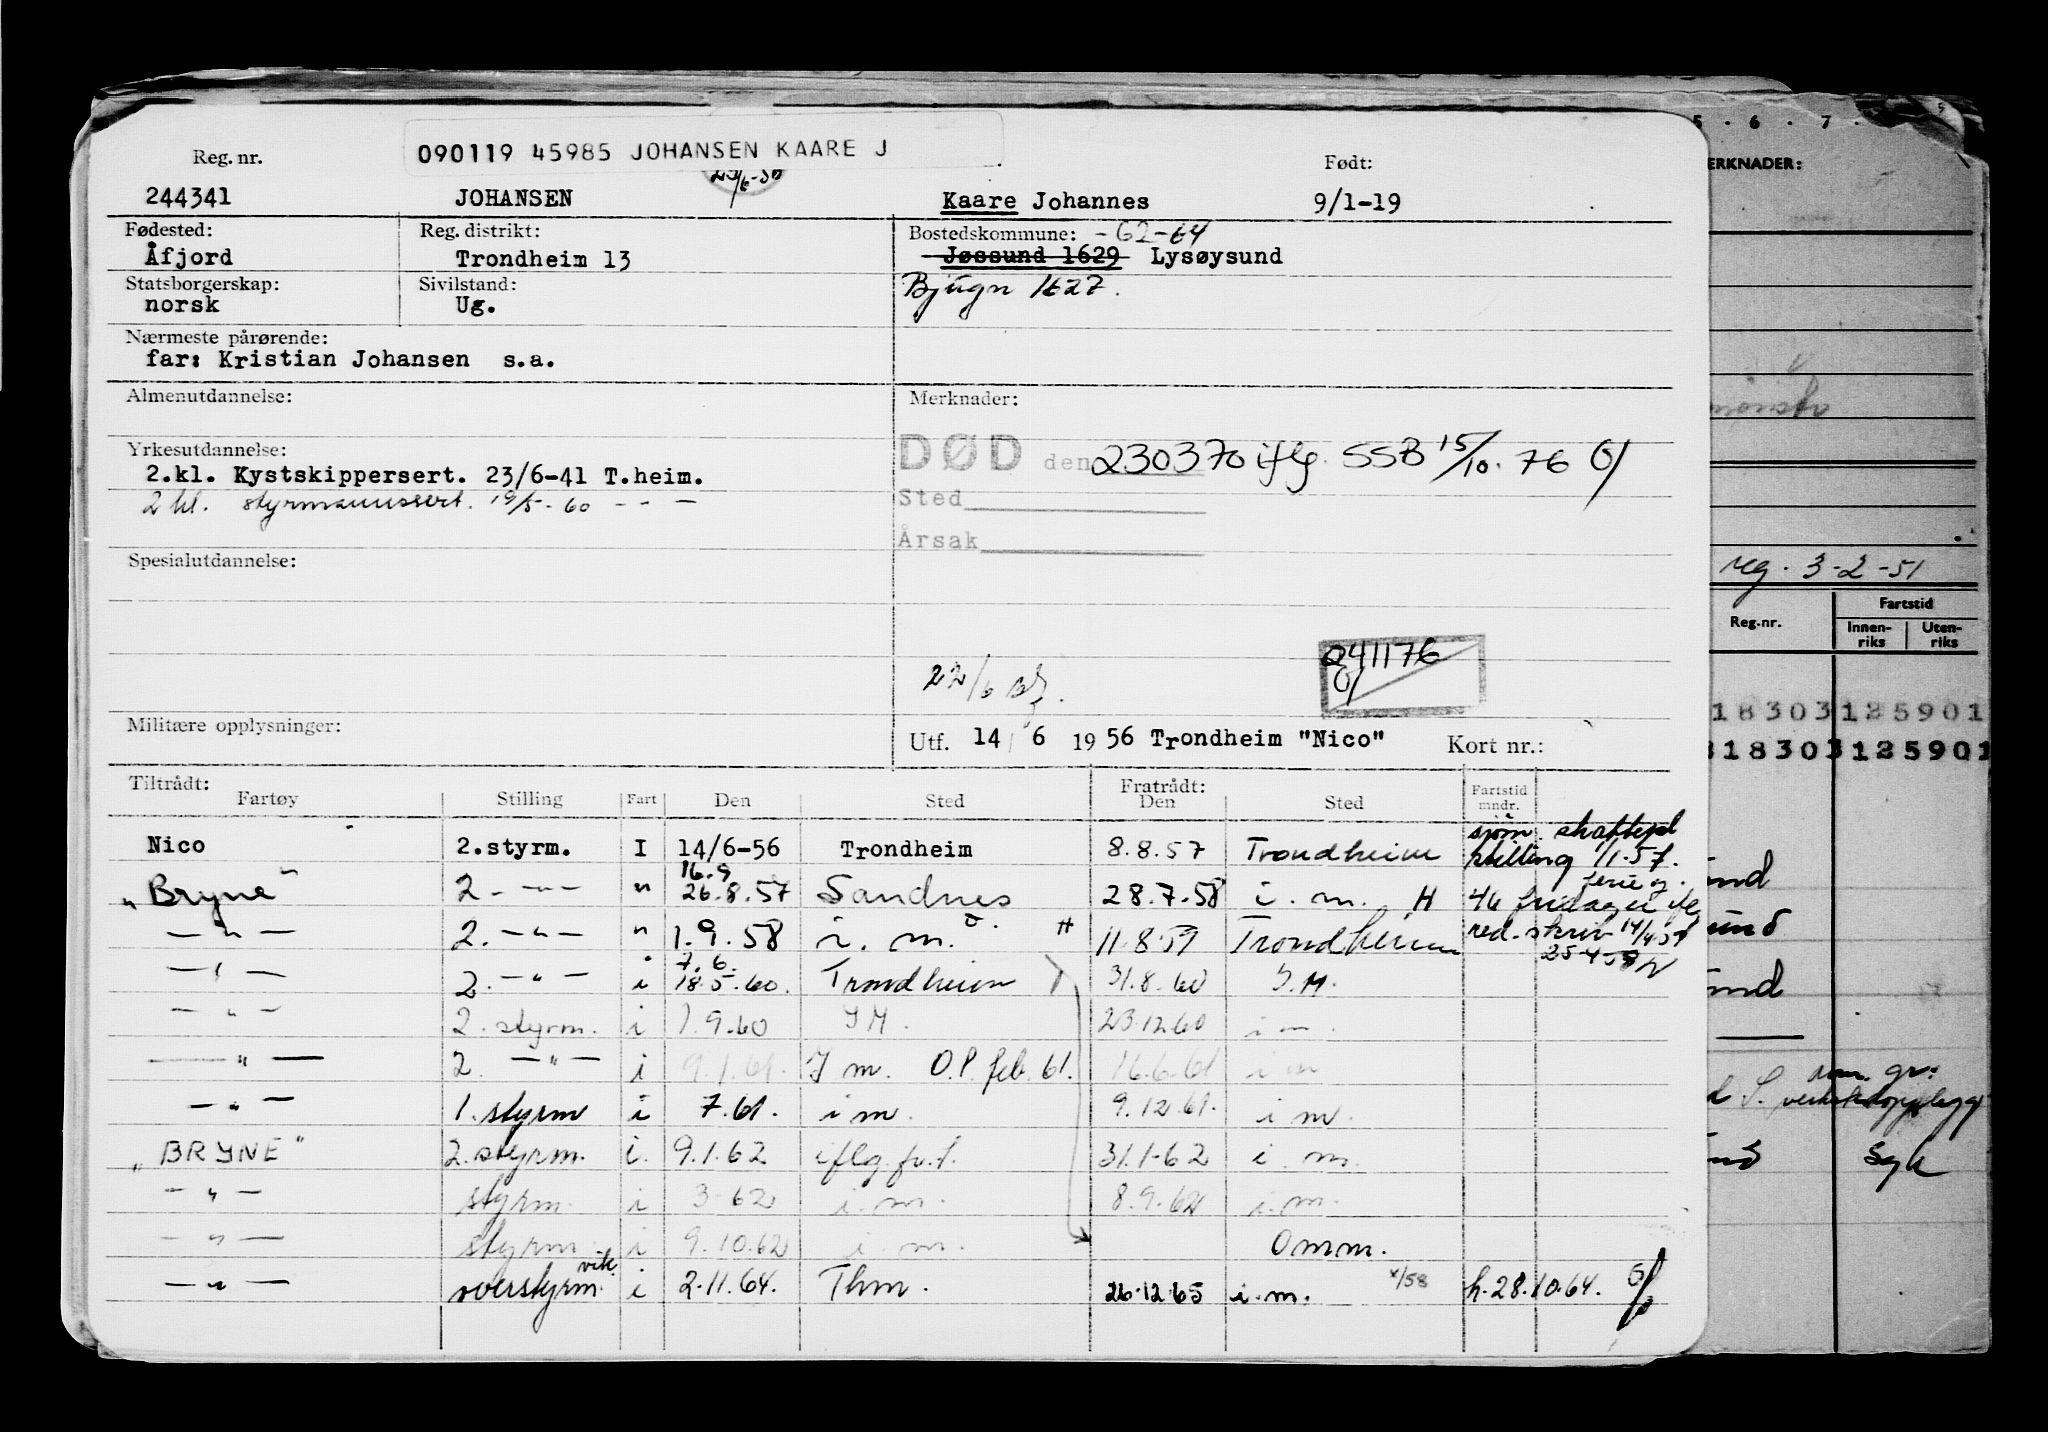 5 . 6 . 7 .
090119 45985 JOHANSEN KAARE J
Reg. nr.
Født:
ERKNADER:
23/6-58
244341 JOHANSEN Kaare Johannes 9/1-19
Fødested: Reg. distrikt: Bostedskommune: -62-64
Åfjord Trondheim 13 Jøssund 1629 Lysøysund
Statsborgerskap: Sivilstand: Bjugn 1627.
norsk Ug.
Nærmeste pårørende:
far: Kristian Johansen s.a.
Almenutdannelse: Merknader:
Yrkesutdannelse:
DØD den 230370 iflg. SSB 15/10. 76
2.kl. Kystskippersert. 23/6-41 T.heim.
2 kl. styrmannssert. 19/5-60 - - -
Sted
Årsak
Spesialutdannelse:
reg. 3-2-51
Fartstid
Reg.nr. Innen- Uten-
riks riks
241176
22/6
Militære opplysninger:
18303125901
Utf. 14/6 1956 Trondheim "Nico" Kort nr.:
318303125901
Tiltrådt: Fratrådt: Fartstid
Fartøy Stilling Fart Den Sted Den Sted mndr.
Nico 2.styrm. I 14/6-56 Trondheim 8.8.57 Trondheim stilling 1/1-57.
16.9
"Bryne" 2. -"- " 26.8.57 Sandnes 28.7.58 i. m. H 46 fridager
ferie og
-"- 2. -"- " 1.9.58 i. m. H 11.8.59 Trondheim red. skriv 14/4 59
25-4-58
7.6.
-"- 2. -"- i 18.5.60. Trondheim 31.8.60 I.M.
-"- 2. styrm. i 1.9.60 IM. 23.12.60 i m.
-"- 2. -"- i 9.1.61. I m. O.l. feb. 61. 16.6.61 i m
-"- 1. styrm i 7.61. i m. 9.12.61. i m.
"BRYNE" 2. styrm. i. 9.1.62 iflg. fu.l. 31.1-62 i. m.
-"- styrm. i 3-62 i. m. 8.9.62 i. m.
-"- styrm. i 9.10.62 i. m. Omm.
-"- overstyrm. vik. i 2.11.64. Thm. 26.12.65 i.m. x/58 h. 28.10.64.
Syk